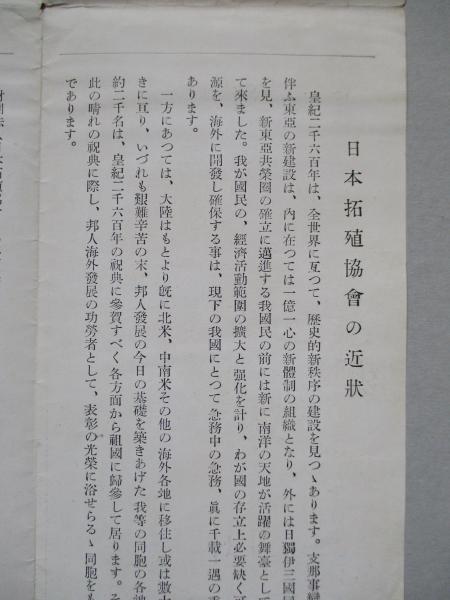 日本拓殖協會の近狀
皇紀二千六百年は、全世界に亙つて、歷史的新秩序の建設を見つゝあります。支那事變
伴ふ東亞の新建設は、內に在つては一億一心の新體制の組織となり、外には日獨伊三國同
を見、新東亞共榮圈の確立に邁進する我國民の前には新に南洋の天地が活躍の舞臺として
て來ました。我が國民の、經濟活動範圍の擴大と强化を計り、わが國の存立上必要缺く
源を、海外に開發し確保する事は、現下の我國にとつて急務中の急務、眞に千載一遇の
あります。
一方にあつては、大陸はもとより旣に北米、中南米その他の海外各地に移住し或は數
きに亙り、いづれも艱難辛苦の末、邦人發展の今日の基礎を築きあげた我等の同胞の各
約二千名は、皇紀二千六百年の祝典に參賀すべく各方面から祖國に歸參して居ります。
此の晴れの祝典に際し、邦人海外發展の功勞者として、表彰の光榮に浴せらるゝ同胞をも
であります。